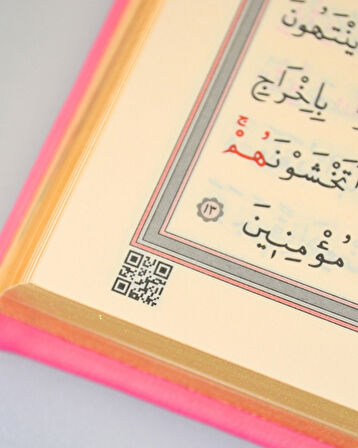 يَنْتَهُونَ
بِاِخْرَاجِ
اَتَخْشَوْنَهُمْۚ
مُؤْمِنٖينَ ١٣